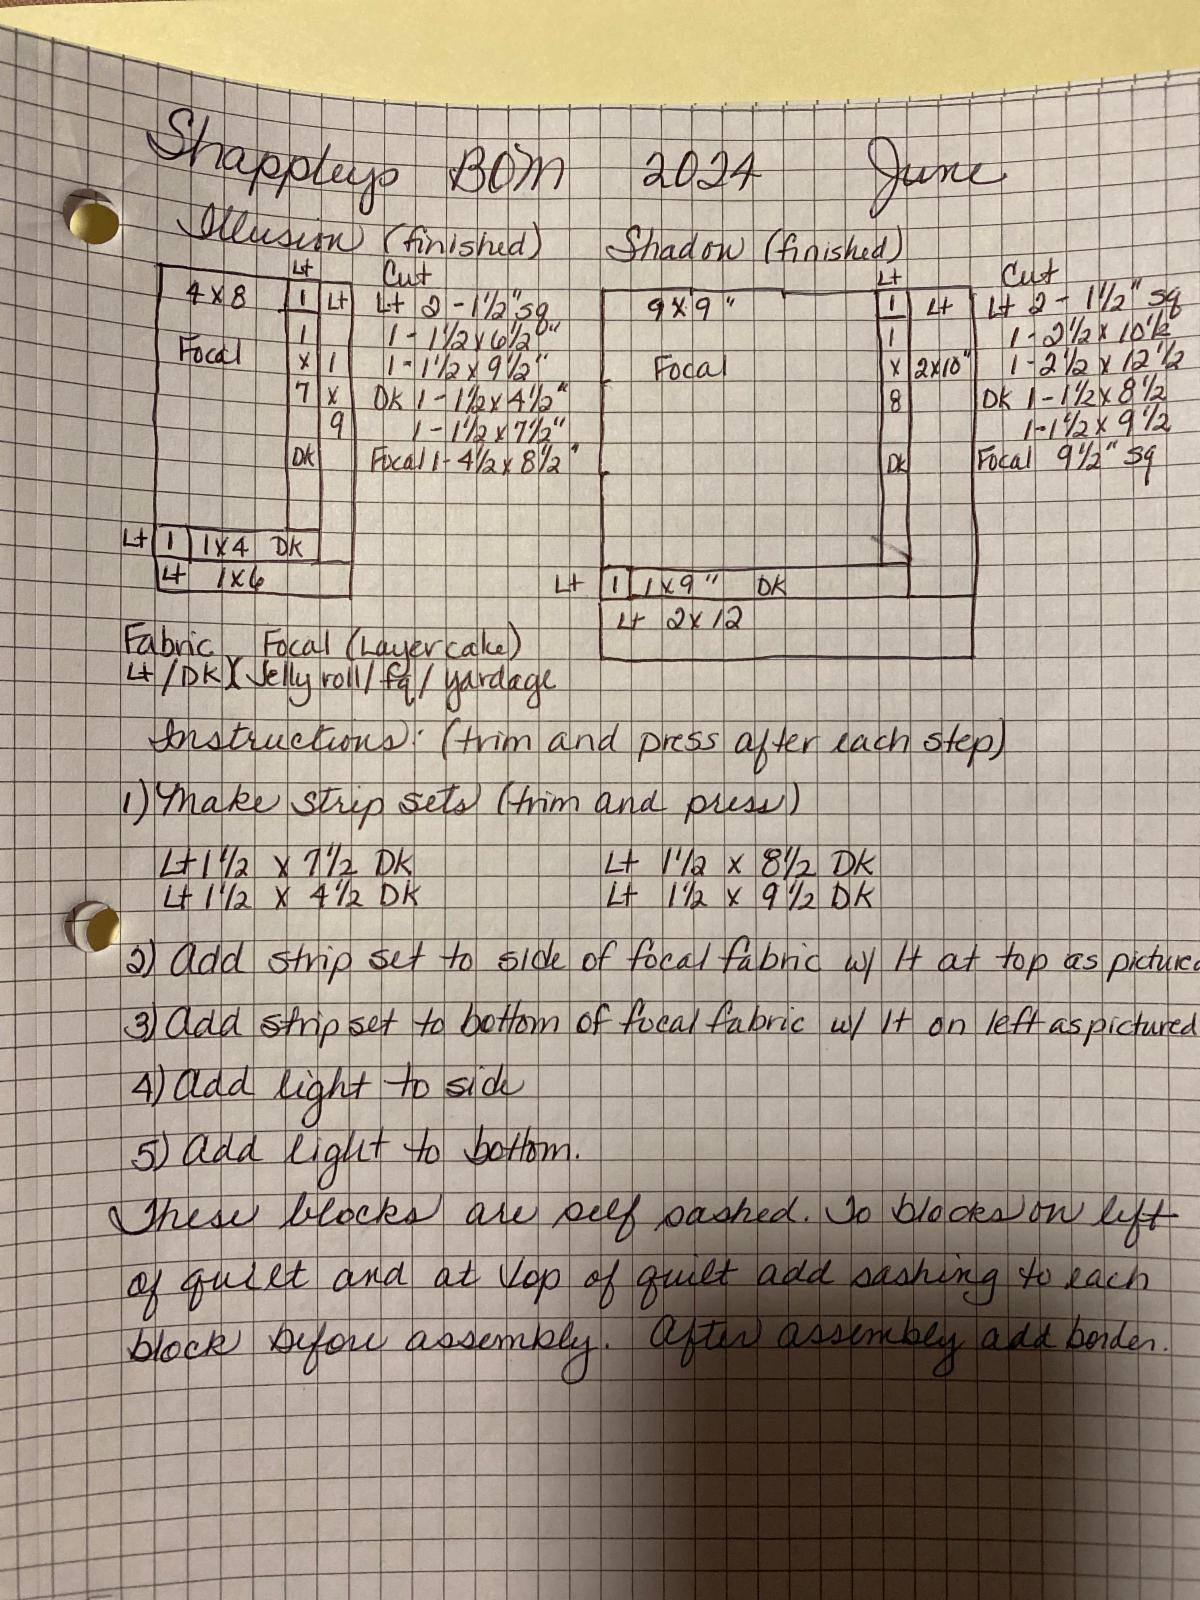 Shappleys BOM 2024 June
Illusion (finished)
Lt
4 x 8
1
Lt
Focal
1
x
7
Dk
1
x
9
Lt
1
1x4 DK
Lt 1x6
Cut
Lt 2 - 1 1/2" sq
1 - 1 1/2 x 6 1/2"
1 - 1 1/2 x 9 1/2"
DK 1 - 1 1/2 x 4 1/2"
1 - 1 1/2 x 7 1/2"
Focal 1 - 4 1/2 x 8 1/2"
Shadow (finished)
Lt
9 x 9"
1
Lt
Focal
1
x
8
Dk
2x10"
Lt
1
1x9" DK
Lt 2x12
Cut
Lt 2 - 1 1/2" sq
1 - 2 1/2 x 10 1/2
1 - 2 1/2 x 12 1/2
DK 1 - 1 1/2 x 8 1/2
1 - 1 1/2 x 9 1/2
Focal 9 1/2" sq
Fabric Focal (Layer cake)
Lt / DK Jelly roll / fq / yardage
Instructions: (trim and press after each step)
1) Make strip sets (trim and press)
Lt 1 1/2 x 7 1/2 DK
Lt 1 1/2 x 4 1/2 DK
Lt 1 1/2 x 8 1/2 DK
Lt 1 1/2 x 9 1/2 DK
2) Add strip set to side of focal fabric w/ lt at top as pictured
3) Add strip set to bottom of focal fabric w/ lt on left as pictured
4) Add light to side
5) Add light to bottom.
These blocks are self sashed. To blocks on left
of quilt and at top of quilt add sashing to each
block before assembly. After assembly add border.